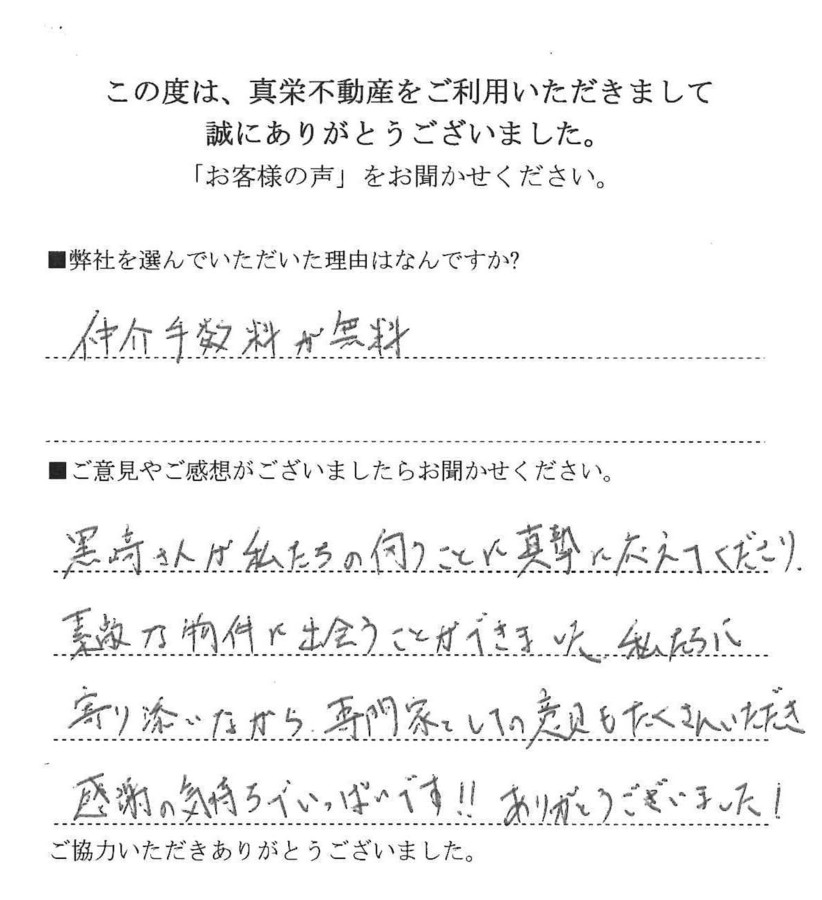 この度は、真栄不動産をご利用いただきまして
誠にありがとうございました。
「お客様の声」をお聞かせください。
■弊社を選んでいただいた理由はなんですか?
仲介手数料が無料
■ご意見やご感想がございましたらお聞かせください。
黒崎さんが私たちの伺うことに真摯に応えてくださり、
素敵な物件に出会うことができました。私たちに
寄り添いながら、専門家としての意見もたくさんいただき
感謝の気持ちでいっぱいです!! ありがとうございました!
ご協力いただきありがとうございました。